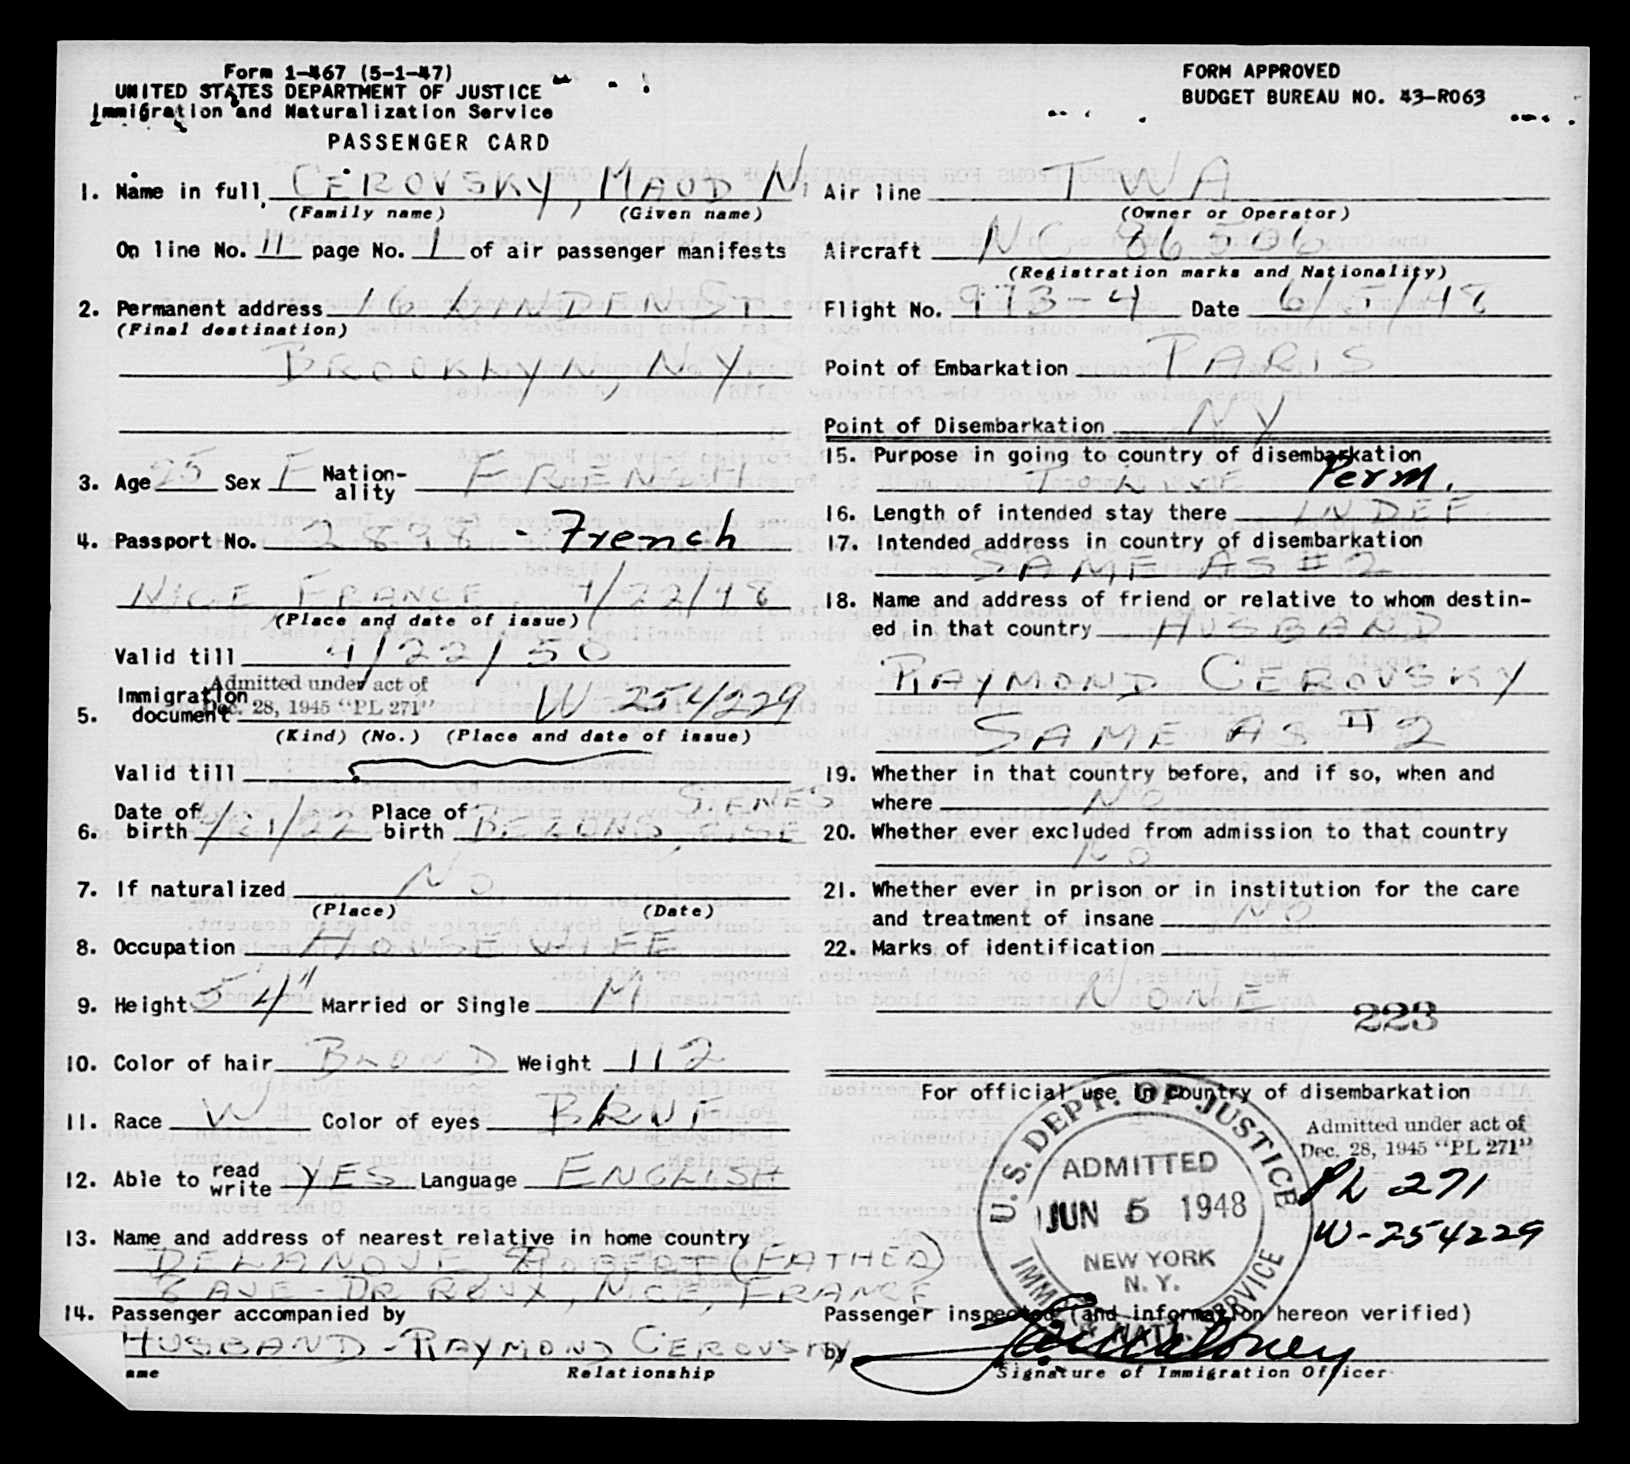 Form 1-467 (5-1-47)
UNITED STATES DEPARTMENT OF JUSTICE
Immigration and Naturalization Service
PASSENGER CARD
FORM APPROVED
BUDGET BUREAU NO. 43-R063
1. Name in full CEROVSKY, MAUD N.
(Family name) (Given name)
On line No. 11 page No. 1 of air passenger manifests
2. Permanent address 16 LINDEN ST
(Final destination)
BROOKLYN, NY
3. Age 25 Sex F Nation-ality FRENCH
4. Passport No. 2898 - French
NICE FRANCE 4/22/48
(Place and date of issue)
Valid till 4/22/50
Admitted under act of
Dec. 28, 1945 "PL 271"
5. Immigration document W-254229
(Kind) (No.) (Place and date of issue)
Valid till
6. Date of birth 4/21/22 Place of birth
7. If naturalized NO
(Place) (Date)
8. Occupation HOUSEWIFE
9. Height 5'4" Married or Single M
10. Color of hair BLOND Weight 112
11. Race W Color of eyes
12. Able to read write YES Language ENGLISH
13. Name and address of nearest relative in home country
ROBERT (FATHER)
6 AVE - DR ROUX, NICE, FRANCE
14. Passenger accompanied by
HUSBAND - RAYMOND CEROVSKY
ame Relationship
Air line TWA
(Owner or Operator)
Aircraft NC 86506
(Registration marks and Nationality)
Flight No. 973-4 Date 6/5/48
Point of Embarkation PARIS
Point of Disembarkation NY
15. Purpose in going to country of disembarkation
TO LIVE Perm.
16. Length of intended stay there INDEF
17. Intended address in country of disembarkation
SAME AS #2
18. Name and address of friend or relative to whom destin-
ed in that country HUSBAND
RAYMOND CEROVSKY
SAME AS #2
19. Whether in that country before, and if so, when and
where NO
20. Whether ever excluded from admission to that country
NO
21. Whether ever in prison or in institution for the care
and treatment of insane NO
22. Marks of identification
NONE
223
For official use in country of disembarkation
U.S. DEPT. OF JUSTICE
ADMITTED
JUN 5 1948
NEW YORK
N. Y.
Admitted under act of
Dec. 28, 1945 "PL 271"
PL 271
W-254229
Passenger inspected (and information hereon verified)
by
Signature of Immigration Officer